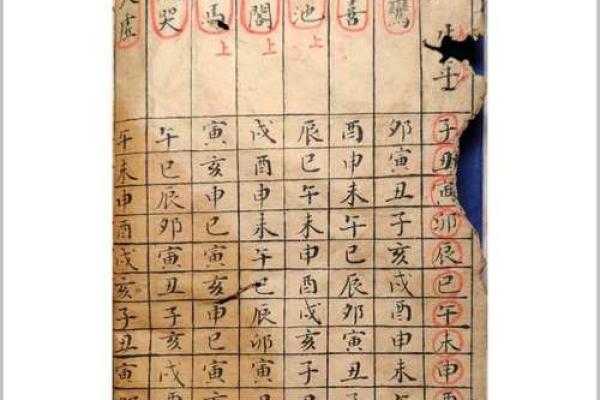 斗子丑寅卯辰巳午未申
鸞卯寅丑子亥戌酉申未
喜酉申未午巳辰卯寅丑
池上辰巳午未申酉戌亥子
閣上戌酉申未午巳辰卯寅
馬上寅亥申巳寅亥申巳寅
哭午巳辰卯寅丑子亥戌
虛午未申酉戌亥子丑寅